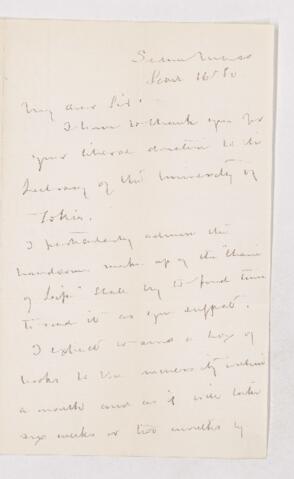 Salem Mass
16 80
My dear Sir.
I have to thank you for
your liberal donation to the
Library of the University of
Tokio.
I particularly admire the
handsome make up of the "Chain
of Life" Shall try to find time
to read it as you suggest.
I expect to send a box of
books to the university within
a month and as it will take
six weeks or two months by